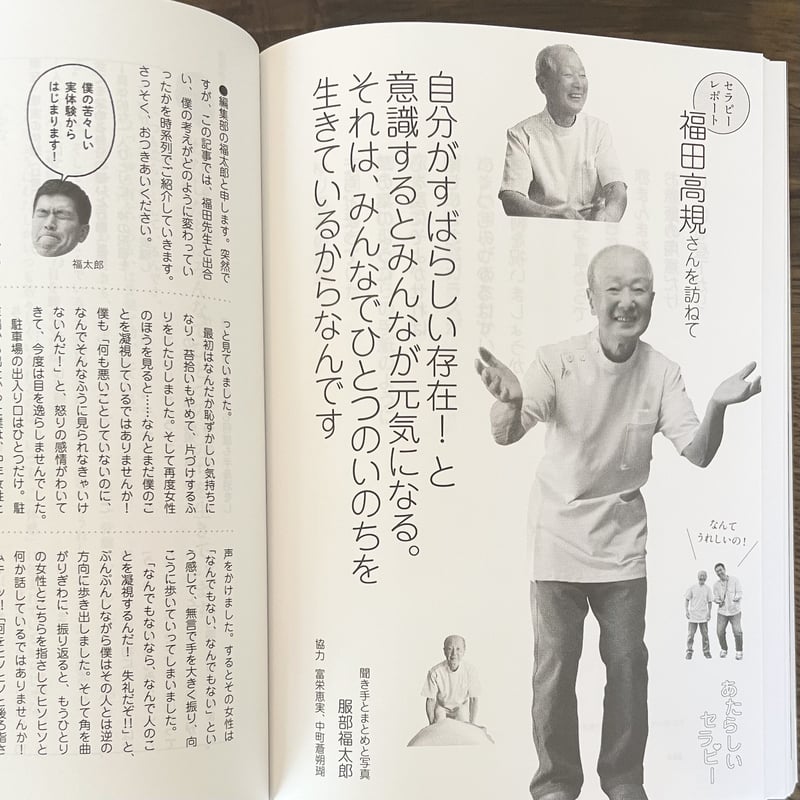 セラピー
レポート
福田高規さんを訪ねて
自分がすばらしい存在！と
意識するとみんなが元気になる。
それは、みんなでひとつのいのちを
生きているからなんです
なんて
うれしいの！
あたらしい
セラピー
聞き手とまとめと写真
服部福太郎
協力 富栄恵実、中町蒼朔瑚
●編集部の福太郎と申します。突然で
すが、この記事では、福田先生と出合
い、僕の考えがどのように変わってい
ったかを時系列でご紹介していきます。
さっそく、おつきあいください。
僕の苦々しい
実体験から
はじまります！
福太郎
っと見ていました。
最初はなんだか恥ずかしい気持ちに
なり、苔拾いもやめて、片づけするふ
りをしたりしました。そして再度女性
のほうを見ると……なんとまだ僕のこ
とを凝視しているではありませんか！
僕も「何も悪いことしていないのに、
なんでそんなふうに見られなきゃいけ
ないんだ！」と、怒りの感情がわいて
きて、今度は目を逸らしませんでした。
駐車場の出入り口はひとつだけ。駐
声をかけました。するとその女性は
「なんでもない、なんでもない」とい
う感じで、無言で手を大きく振り、向
こうに歩いていってしまいました。
「なんでもないなら、なんで人のこ
とを凝視するんだ！ 失礼だぞ!!」と、
ぶんぶんしながら僕はその人とは逆の
方向に歩き出しました。そして角を曲
がりぎわに、振り返ると、もうひとり
の女性とこちらを指さしてヒソヒソと
何か話しているではありませんか！